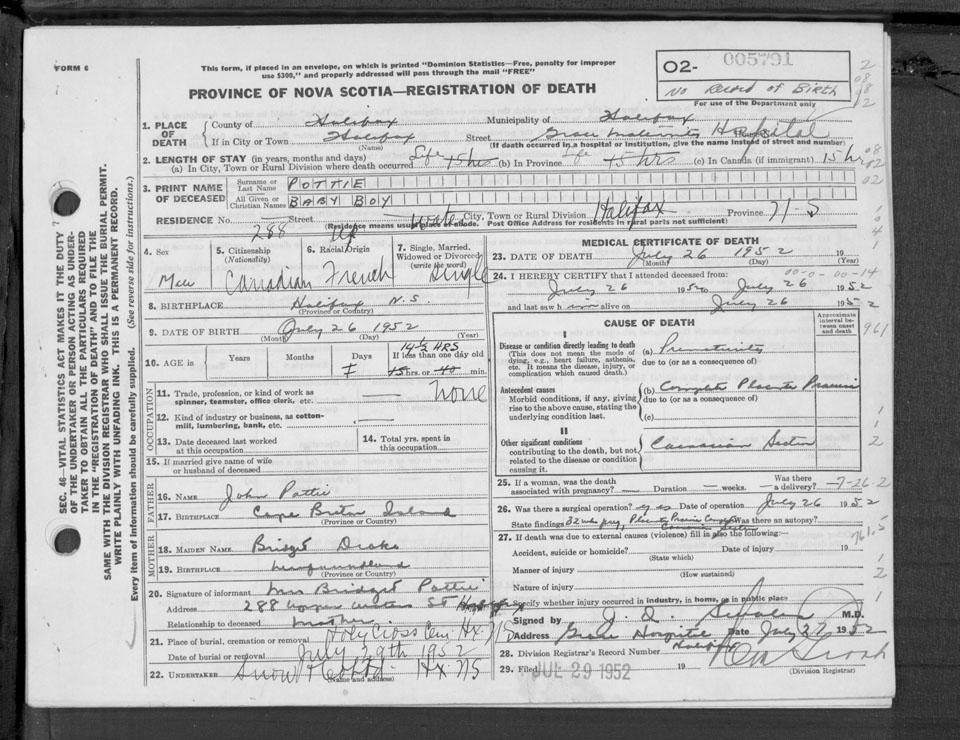 FORM 6
This form, if placed in an envelope, on which is printed "Dominion Statistics—Free, penalty for improper
use $300," and properly addressed will pass through the mail "FREE"
PROVINCE OF NOVA SCOTIA—REGISTRATION OF DEATH
O2- 005791
No Record of Birth
For use of the Department only
1. PLACE OF DEATH
County of Halifax Municipality of Halifax
If in City or Town Halifax Street Grace Maternity Hospital
(Name) (If death occurred in a hospital or institution, give the name instead of street and number)
2. LENGTH OF STAY (in years, months and days)
(a) In City, Town or Rural Division where death occurred Life 15 hrs (b) In Province Life 15 hrs (c) In Canada (if immigrant) 15 hrs
3. PRINT NAME OF DECEASED
Surname or Last Name POTTIE
All Given or Christian Names BABY BOY
RESIDENCE No. 288 Street Up Water City, Town or Rural Division Halifax Province N-S
(Residence means usual place of abode. Post Office Address for residents in rural parts not sufficient)
4. Sex Male
5. Citizenship (Nationality) Canadian
6. Racial Origin French
7. Single, Married, Widowed or Divorced (write the word) Single
8. BIRTHPLACE Halifax N.S.
(Province or Country)
9. DATE OF BIRTH July 26 1952
(Month) (Day) (Year)
10. AGE is Years Months Days If less than one day old
14½ HRS
15 hrs. or 40 min.
OCCUPATION
11. Trade, profession, or kind of work as spinner, teamster, office clerk, etc. None
12. Kind of industry or business, as cotton-mill, lumbering, bank, etc.
13. Date deceased last worked at this occupation
14. Total yrs. spent in this occupation
15. If married give name of wife or husband of deceased
FATHER
16. Name John Pottie
17. Birthplace Cape Breton Island
(Province or Country)
MOTHER
18. MAIDEN NAME Bridget Drake
19. BIRTHPLACE Newfoundland
(Province or Country)
20. Signature of informant Mrs Bridget Pottie
Address 288 Upper Water St Halifax
Relationship to deceased Mother
21. Place of burial, cremation or removal Holy Cross Cem. Hx. N S
Date of burial or removal July 29th 1952
22. UNDERTAKER Snow & Co Ltd. Hx NS
(Name and address)
MEDICAL CERTIFICATE OF DEATH
23. DATE OF DEATH July 26 1952 19
(Month) (Day) (Year)
24. I HEREBY CERTIFY that I attended deceased from:
00-0-00-14
July 26 1952 to July 26 1952
and last saw him alive on July 26 1952
CAUSE OF DEATH
Approximate interval between onset and death
961
I
Disease or condition directly leading to death
(This does not mean the mode of dying, e.g., heart failure, asthenia, etc. It means the disease, injury, or complication which caused death.)
(a) Prematurity
due to (or as a consequence of)
Antecedent causes
Morbid conditions, if any, giving rise to the above cause, stating the underlying condition last.
(b) Complete Placenta Praevia
due to (or as a consequence of)
(c)
II
Other significant conditions contributing to the death, but not related to the disease or condition causing it.
Caesarian Section
25. If a woman, was the death associated with pregnancy? Duration weeks. Was there a delivery? -7-26-2
26. Was there surgical operation? yes Date of operation July 26 1952
State findings 32 wks preg Placenta Praevia Complete Caesarian Section Was there an autopsy?
761.5
27. If death was due to external causes (violence) fill in also the following:—
Accident, suicide or homicide? Date of injury 19
(State which)
Manner of injury
(How sustained)
Nature of injury
Specify whether injury occurred in industry, in home, or in public place
Signed by M.D.
Address Grace Hospital Halifax Date July 27 1952
28. Division Registrar's Record Number
29. Filed JUL 29 1952 19
(Division Registrar)
SEC. 46—VITAL STATISTICS ACT MAKES IT THE DUTY
OF THE UNDERTAKER OR PERSON ACTING AS UNDER-
TAKER TO OBTAIN ALL THE PARTICULARS REQUIRED
IN THE "REGISTRATION OF DEATH" AND TO FILE THE
SAME WITH THE DIVISION REGISTRAR WHO SHALL ISSUE THE BURIAL PERMIT.
WRITE PLAINLY WITH UNFADING INK. THIS IS A PERMANENT RECORD.
Every item of information should be carefully supplied. (See reverse side for instructions.)